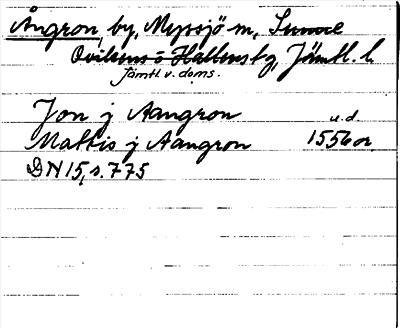 Ångron, by, Myssjö sn, Sunne
Ovikens o Hallens tg, Jämtl. l.
Jämtl. v. doms.
Jon j Aangron
u.d.
Mattis j Aangron 1556 or.
DN 15, s. 775